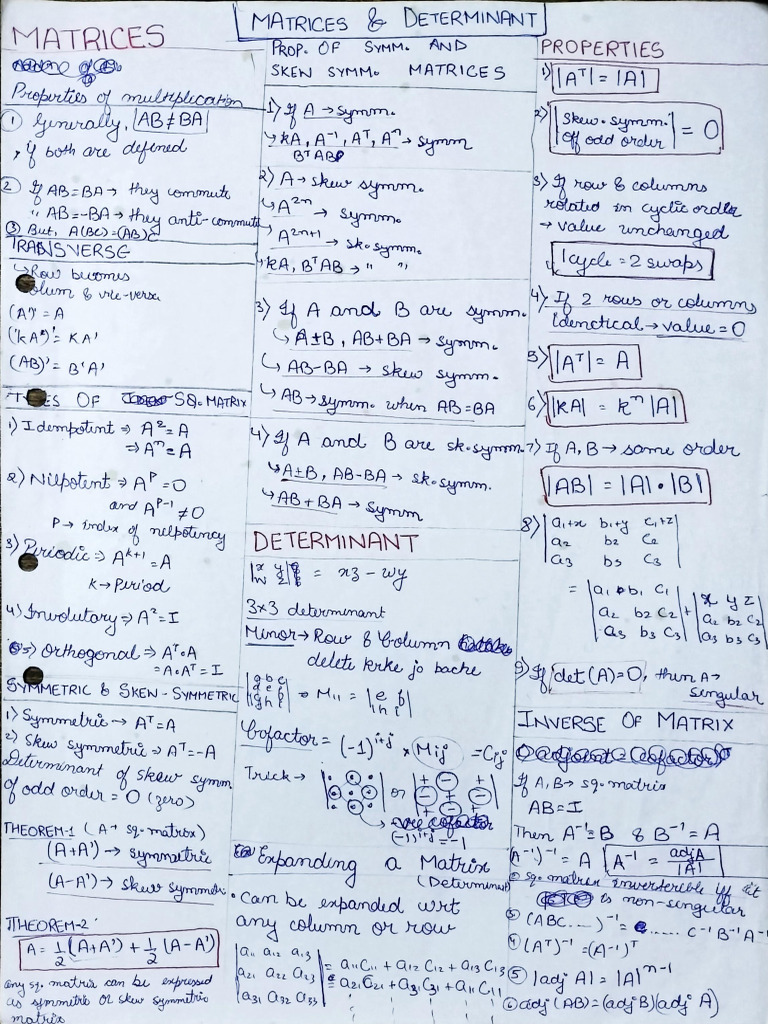 MATRICES & DETERMINANT
MATRICES
Properties of multiplication
① Generally, AB ≠ BA
, if both are defined
② If AB=BA → they commute
" AB=-BA → they anti-commute
③ But, A(BC)=(AB)C
TRANSVERSE
↳ Row becomes
olum & vice-versa
(A')' = A
(kA)' = KA'
(AB)' = B'A'
TYPES OF SQ. MATRIX
1) Idempotent ⇒ A² = A
⇒ Aⁿ = A
2) Nilpotent ⇒ Aᴾ = O
and Aᴾ⁻¹ ≠ O
P → index of nelpotency
3) Periodic ⇒ Aᵏ⁺¹ = A
K → Period
4) Involutary ⇒ A² = I
5) Orthogonal ⇒ Aᵀ·A
= A·Aᵀ = I
SYMMETRIC & SKEN-SYMMETRIC
1) Symmetric → Aᵀ = A
2) Skew symmetric ⇒ Aᵀ = -A
Determinant of skew symm
of odd order = O (zero)
THEOREM-1 (A → sq. matrix)
(A+A') → symmetric
(A-A') → skew symme
THEOREM-2
A = 1/2 (A+A') + 1/2 (A-A')
any sq. matrix can be expressed
as symmetric or skew symmetric
matrix
PROP. OF SYMM. AND
SKEN SYMM. MATRICES
1) If A → symm.
↳ kA, A⁻¹, Aᵀ, Aⁿ → symm
BᵀAB
2) A → skew symm.
↳ A²ⁿ → symm.
↳ A²ⁿ⁺¹ → sk. symm.
↳ kA, BᵀAB → " "
3) If A and B are symm.
↳ A±B, AB+BA → symm.
↳ AB-BA → skew symm.
↳ AB → symm. when AB=BA
4) If A and B are sk. symm.
↳ A±B, AB-BA → sk. symm.
↳ AB+BA → Symm
DETERMINANT
|x y|
|w z| = xz - wy
3×3 determinant
Minor → Row & Column
delete krke jo bache
|a b c|
|d e f|
|g h i| ⇒ M₁₁ = |e f|
|h i|
Cofactor = (-1)ⁱ⁺ʲ × Mᵢⱼ = Cᵢⱼ
Trick → or
+ - +
- + -
+ - +
↳ -ve cofactor
(-1)ⁱ⁺ʲ = -1
Expanding a Matrix
(Determinant
• Can be expanded wrt
any column or row
|a₁₁ a₁₂ a₁₃| = a₁₁C₁₁ + a₁₂C₁₂ + a₁₃C₁₃
|a₂₁ a₂₂ a₂₃| = a₂₁C₂₁ + a₃₁C₃₁ + a₁₁C₁₁
|a₃₁ a₃₂ a₃₃|
PROPERTIES
1) |Aᵀ| = |A|
2) |skew. symm. of odd order| = O
3) If row & columns
rotated in cyclic order
→ value unchanged
1 cycle = 2 swaps
4) If 2 rows or columns
identical → value = 0
5) |Aᵀ| = A
6) |kA| = kⁿ |A|
7) If A, B → same order
|AB| = |A|·|B|
8) |a₁+x b₁+y c₁+z|
|a₂ b₂ c₂|
|a₃ b₃ c₃|
= |a₁ b₁ c₁| + |x y z|
|a₂ b₂ c₂| |a₂ b₂ c₂|
|a₃ b₃ c₃| |a₃ b₃ c₃|
9) If det(A)=0, then A →
singular
INVERSE OF MATRIX
If A, B → sq. matrix
AB = I
Then A⁻¹ = B & B⁻¹ = A
(A⁻¹)⁻¹ = A A⁻¹ = adjA/|A|
② sq. matrix invertible iff it
is non-singular
③ (ABC....)⁻¹ = ...... C⁻¹ B⁻¹ A⁻¹
④ (Aᵀ)⁻¹ = (A⁻¹)ᵀ
⑤ |adj A| = |A|ⁿ⁻¹
⑥ adj (AB) = (adj B)(adj A)